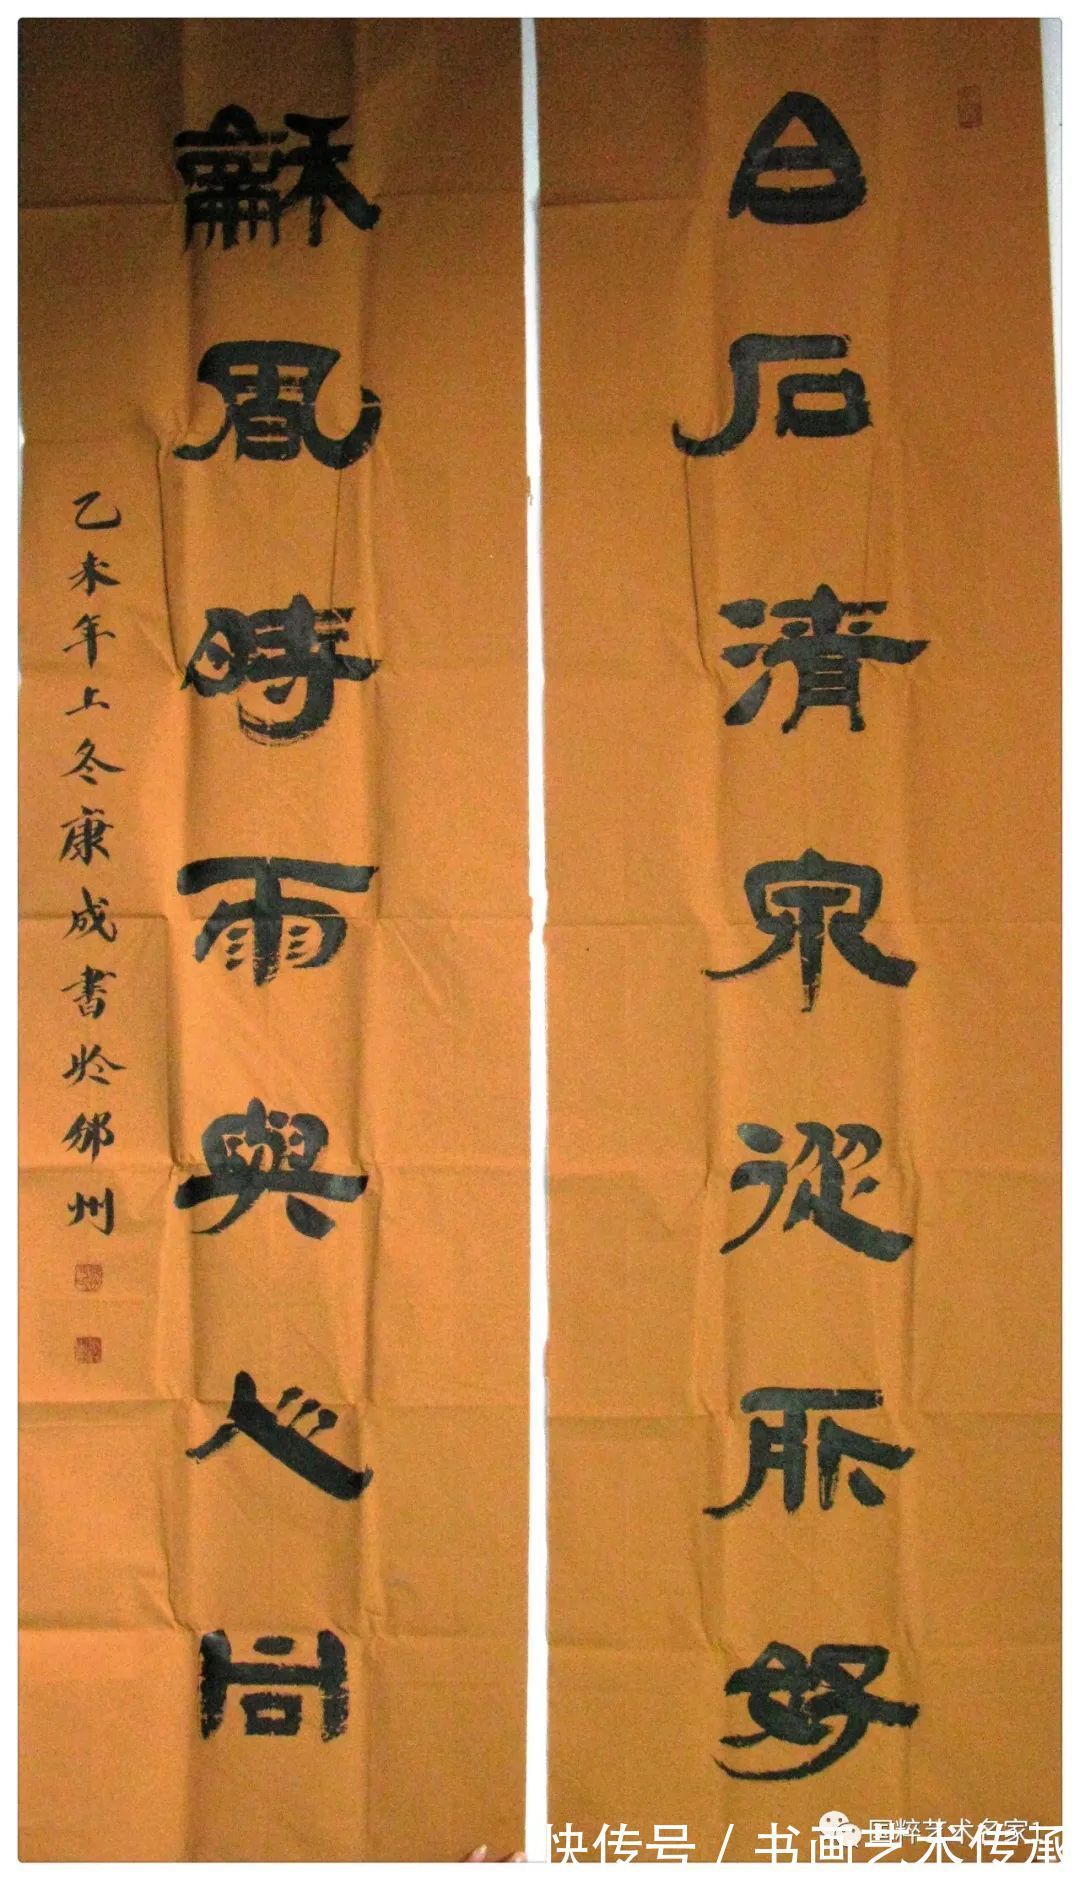 白石清泉從所好
龢風時雨與心同
乙未年上冬康成書於邠州
国粹艺术名家1
快传号 / 书画艺术传承